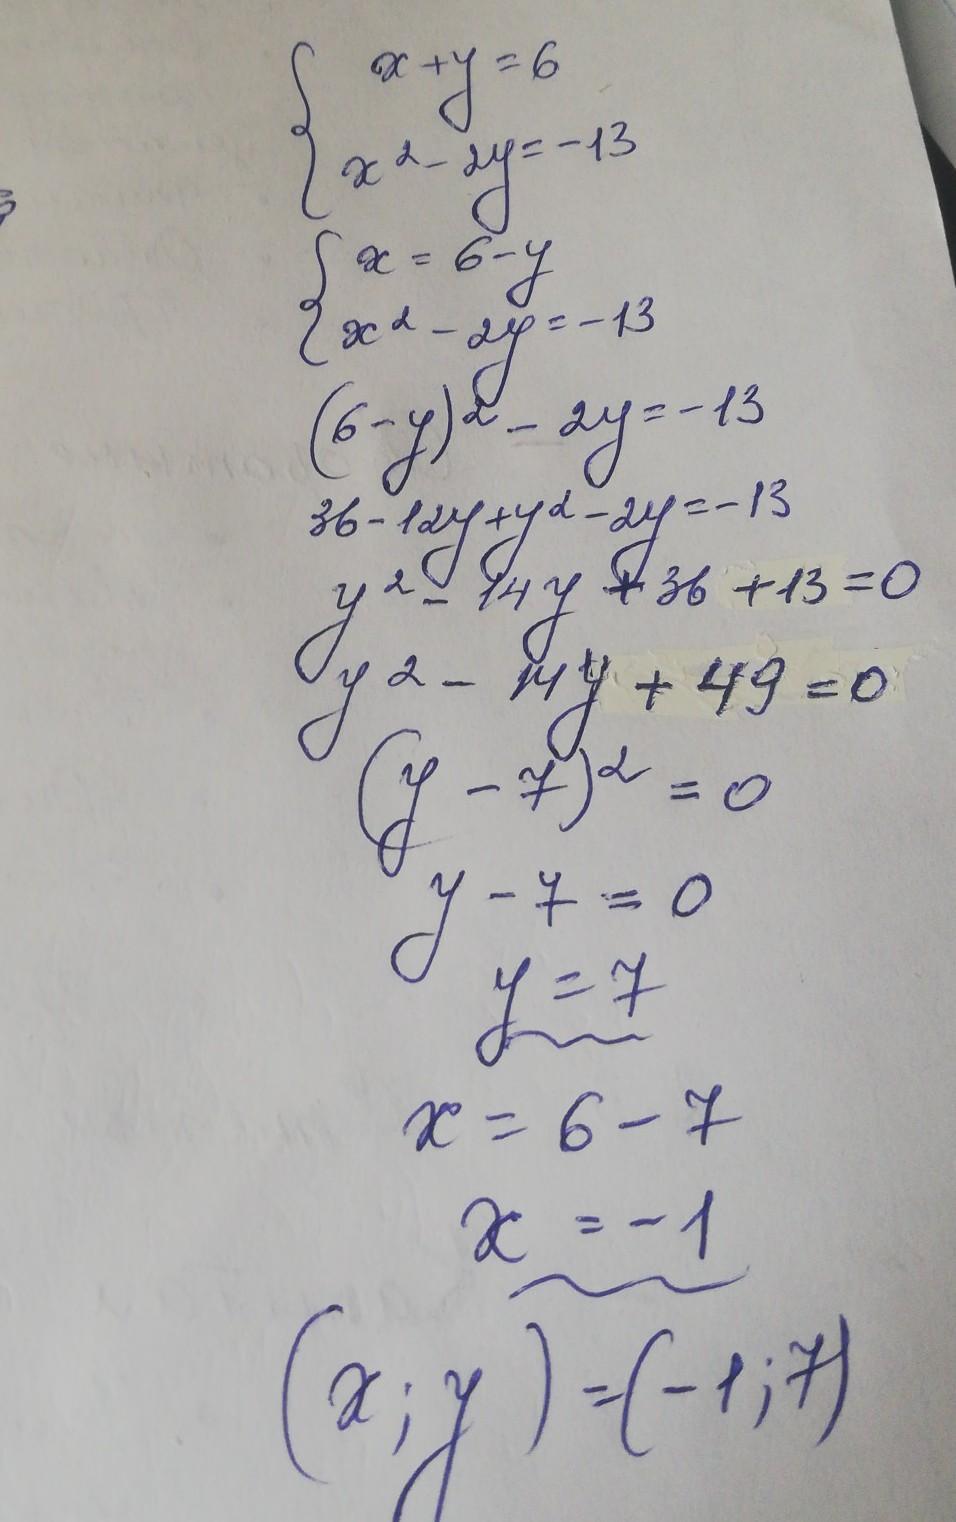 x+y=6
x²-2y=-13
x=6-y
x²-2y=-13
(6-y)²-2y=-13
36-12y+y²-2y=-13
y²-14y+36+13=0
y²-14y+49=0
(y-7)²=0
y-7=0
y=7
x=6-7
x=-1
(x;y)=(-1;7)